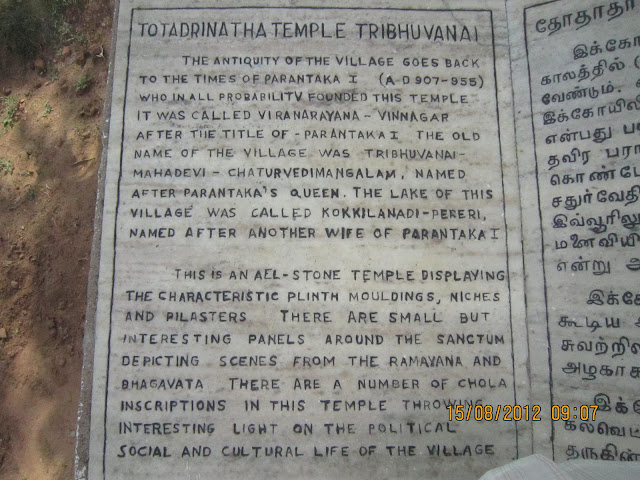 TOTADRINATHA TEMPLE TRIBHUVANAI
THE ANTIQUITY OF THE VILLAGE GOES BACK
TO THE TIMES OF PARANTAKA I (A-D 907-955)
WHO IN ALL PROBABILITY FOUNDED THIS TEMPLE
IT WAS CALLED VIRANARAYANA-VINNAGAR
AFTER THE TITLE OF-PARANTAKA I THE OLD
NAME OF THE VILLAGE WAS TRIBHUVANAI-
MAHADEVI-CHATURVEDIMANGALAM, NAMED
AFTER PARANTAKA'S QUEEN. THE LAKE OF THIS
VILLAGE WAS CALLED KOKKILANADI-PERERI,
NAMED AFTER ANOTHER WIFE OF PARANTAKA I
THIS IS AN AEL-STONE TEMPLE DISPLAYING
THE CHARACTERISTIC PLINTH MOULDINGS, NICHES
AND PILASTERS THERE ARE SMALL BUT
INTERESTING PANELS AROUND THE SANCTUM
DEPICTING SCENES FROM THE RAMAYANA AND
BHAGAVATA THERE ARE A NUMBER OF CHOLA
INSCRIPTIONS IN THIS TEMPLE THROWING
INTERESTING LIGHT ON THE POLITICAL
SOCIAL AND CULTURAL LIFE OF THE VILLAGE
தோதாதா
இக்கோ
காலத்தில்
வேண்டும்.
இக்கோயில்
என்பது
தவிர பரா
கொண்டே
சதுர்வேதி
இவ்வூரிலு
மனைவியி
என்று
இக்கே
கூடிய
சுவற்றின்
அழகாக
கல்வெட்
தருகின்
15/08/2012 09:07